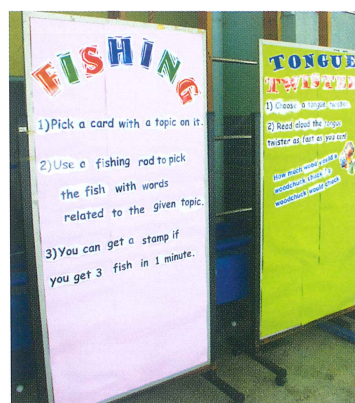 FISHING
1)Pick a card with a topic on it.
2)Use a fishing rod to pick
the fish with words
related to the given topic.
3)You can get a stamp if
you get 3 fish in 1 minute.
TONGUE
TWISTER
1) Choose a tongue twister
2) Read aloud the tongue
twister as fast as you can!
How much wood would a
woodchuck chuck if a
woodchuck would chuck